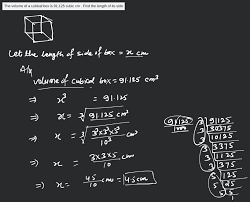 The volume of a cubical box is 91.125 cubic cm. Find the length of its side
Let the length of side of box = x cm
A/q
volume of cubical box = 91.125 cm³
⇒ x³ = 91.125
⇒ x = ∛91.125 cm
⇒ x = ∛(3³×3³×5³/10³) cm
⇒ x = 3×3×5/10 cm
⇒ x = 45/10 cm = 4.5 cm
91125/1000
3 | 91125
3 | 30375
3 | 10125
3 | 3375
3 | 1125
3 | 375
5 | 125
5 | 25
5 | 5
1